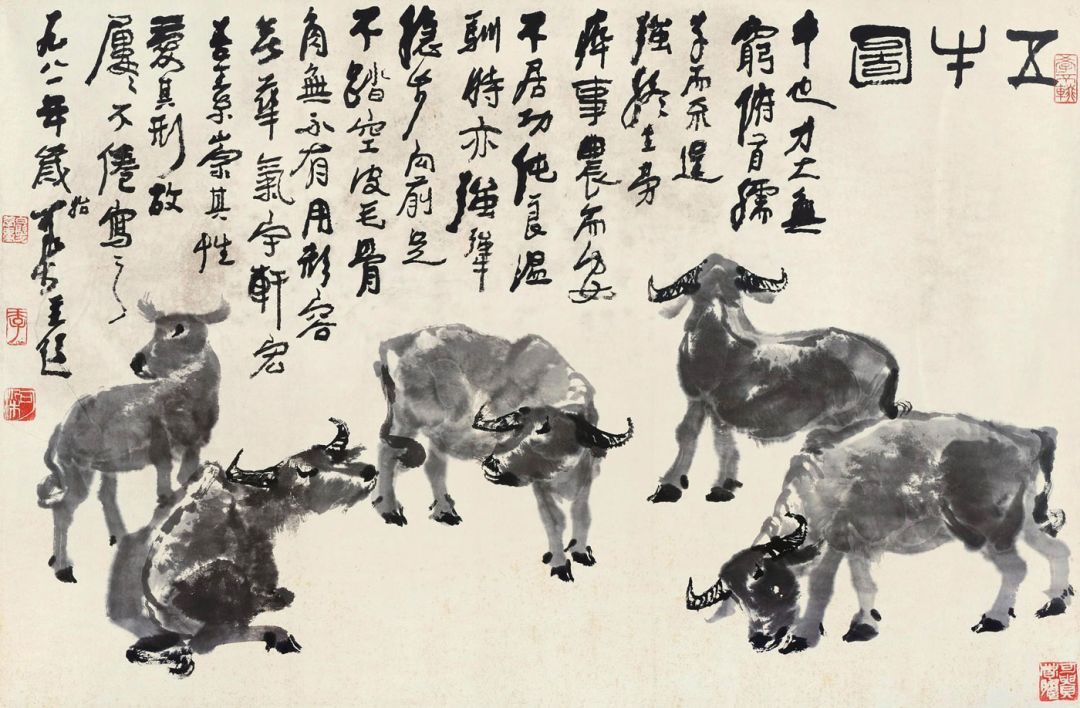 五牛圖
牛也力大無
窮俯首孺
子而不逞
強終生勞
瘁事農而安
不居功純良溫
馴時亦強犟
穩步向前足
不踏空皮毛骨
角無不有用形容
無華氣宇軒宏
吾素崇其性
愛其形故
屢〻不倦寫之
一九八一年歲始
李
可染